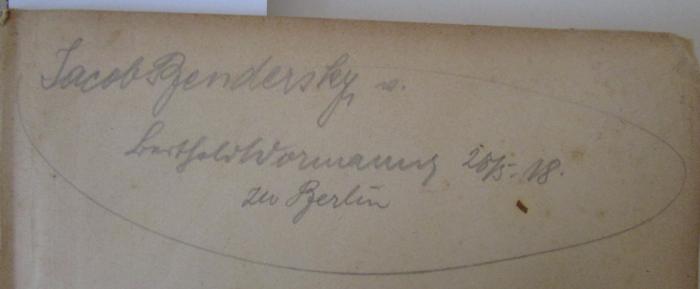 Jacob Bendersky v.
Berthold Wormann 26/5. 18.
zu Berlin